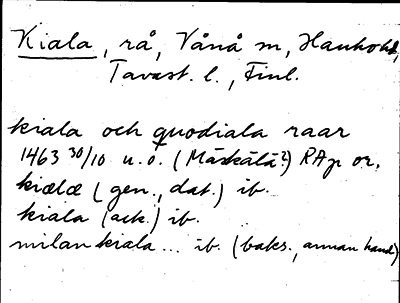 Kiala, rå, Vånå sn, Hauho hd,
Tavast. l., Finl.
kiala och quodiala raar
1463 30/10 u. o. (Mäskälä?) RAp or.
kiælæ (gen., dat.) ib.
kiala (ack.) ib.
milan kiala ... ib. (baks., annan hand)